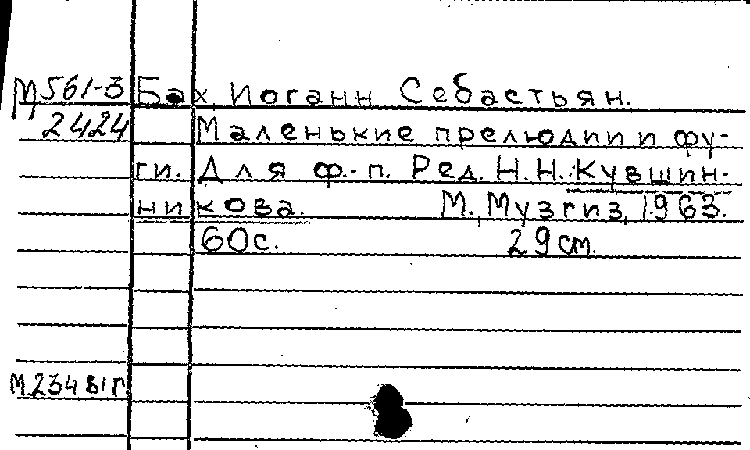 М 561-3 Бах, Иоганн Себастьян.
2424 Маленькие прелюдии и фу-
ги. Для ф.-п. Ред. Н.Н. Кувшин-
никова. М., Музгиз, 1963.
60с. 29см.